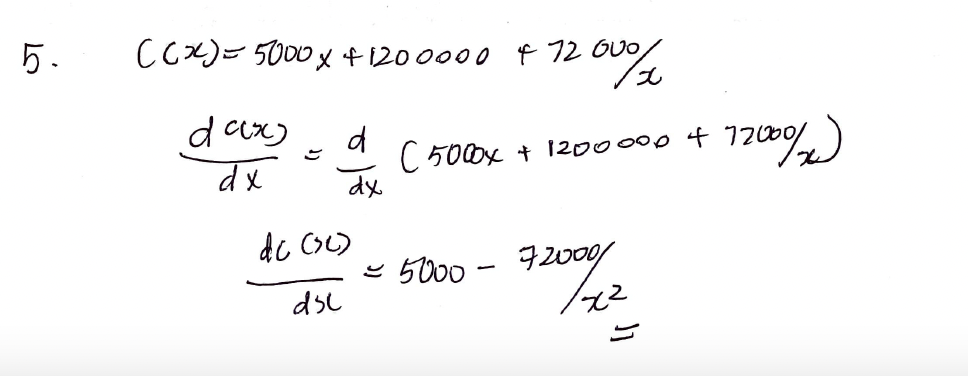 5. C(x) = 5000x + 1200000 + 72000/x
d c(x)/dx = d/dx (5000x + 1200000 + 72000/x)
dc(x)/dx = 5000 - 72000/x²